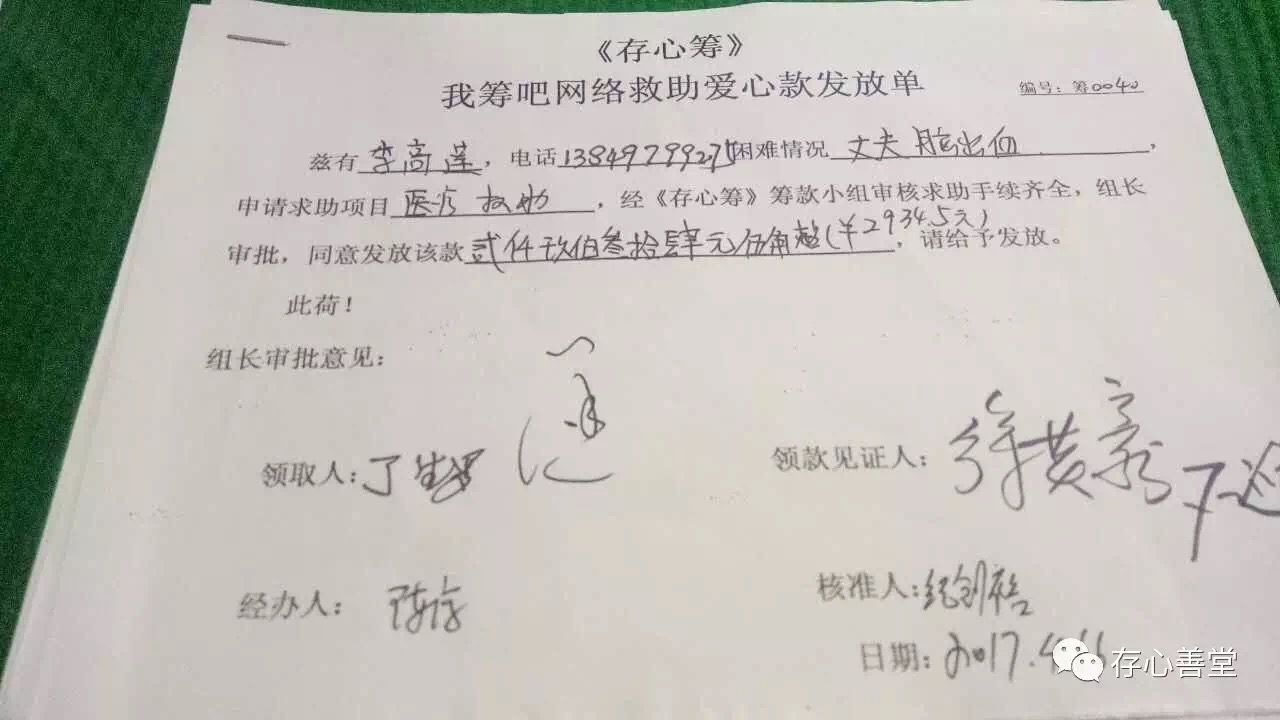 《存心筹》
我筹吧网络救助爱心款发放单
编号：筹0040
兹有李高莲，电话13849799275困难情况丈夫脑出血，
申请求助项目医疗救助，经《存心筹》筹款小组审核求助手续齐全，组长
审批，同意发放该款贰仟玖佰叁拾肆元伍角整(￥2934.5元)，请给予发放。
此荷！
组长审批意见：
领取人：丁
领款见证人：徐黄
经办人：陈
核准人：纪创裕
日期：2017.4.
存心善堂